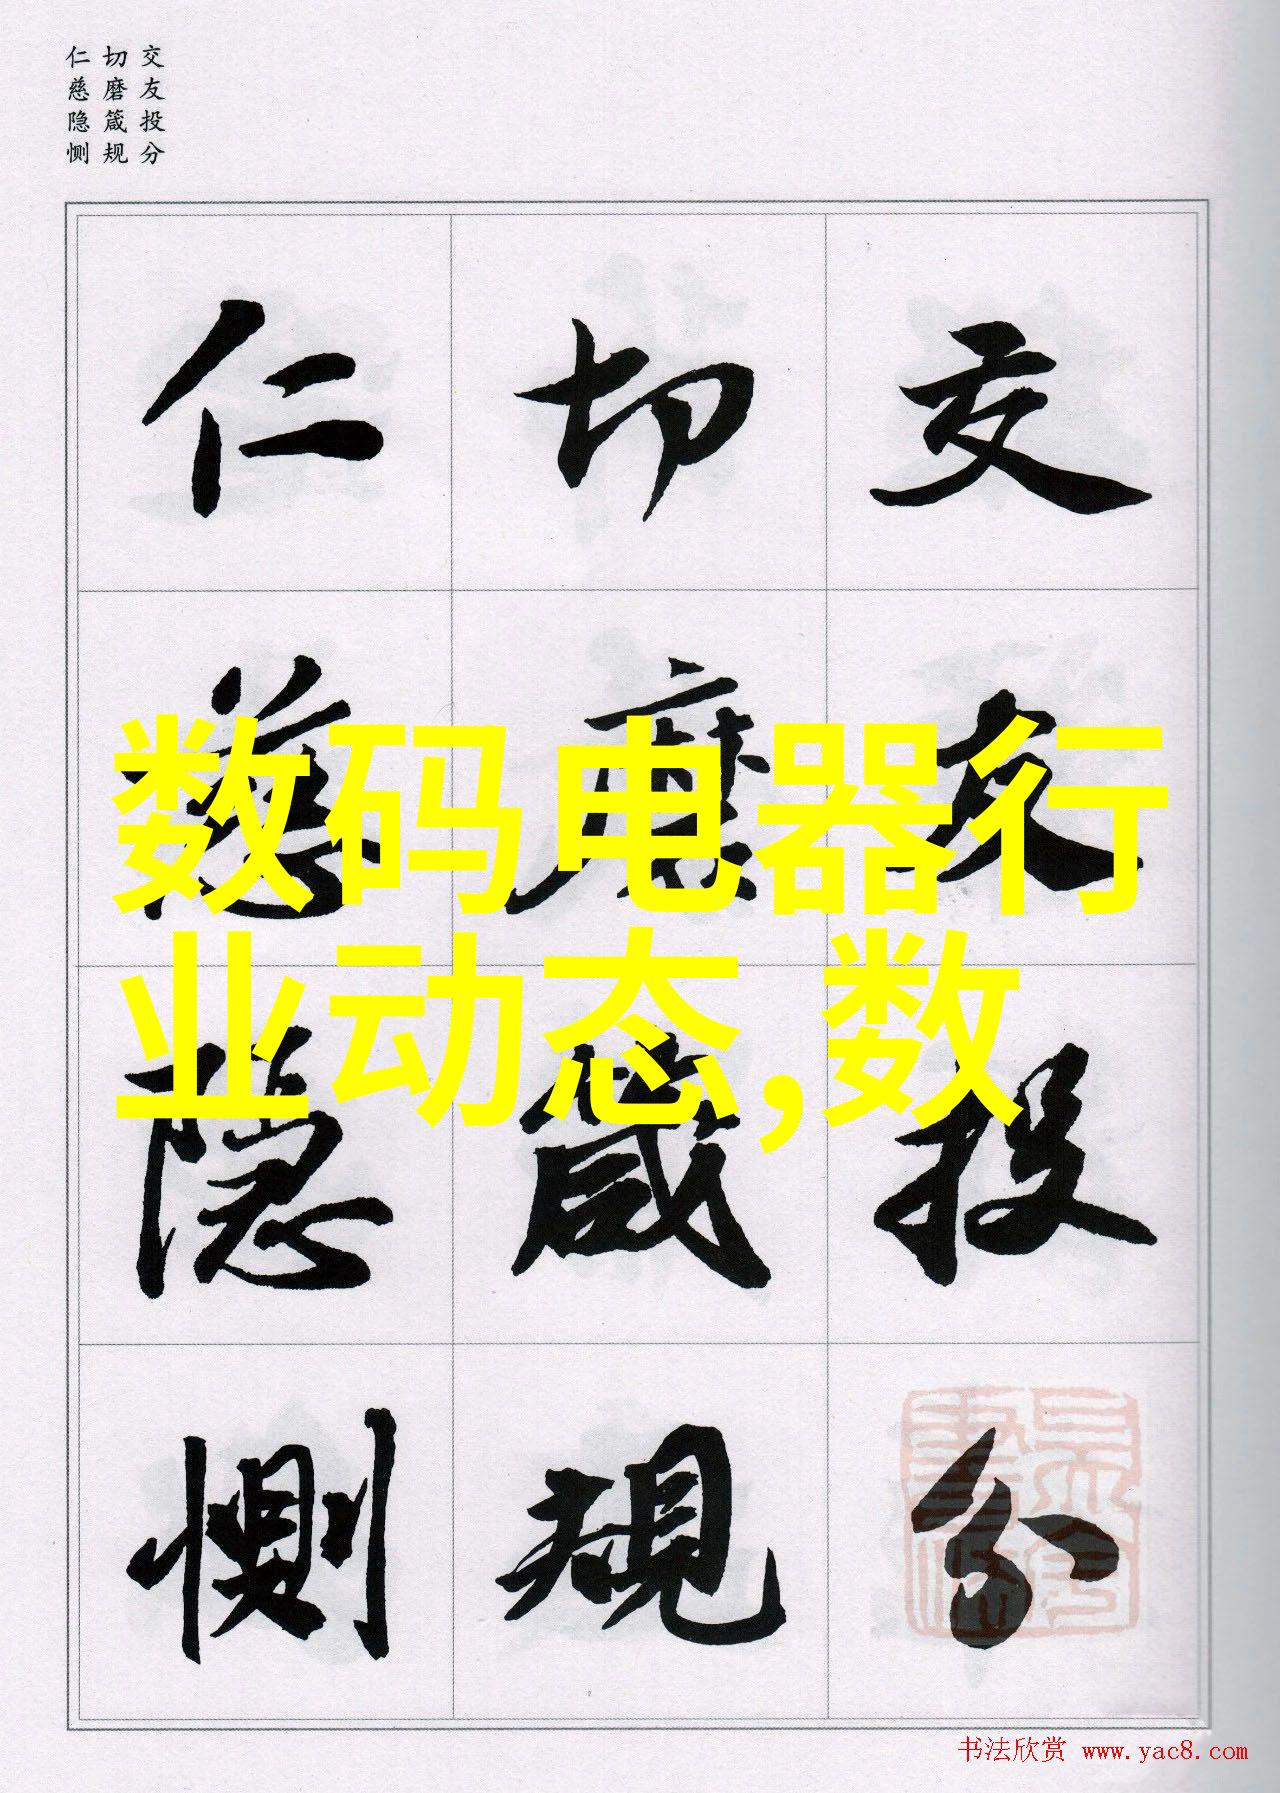 交友投分
切磨箴规
仁慈隐恻
交友投分
切磨箴规
仁慈隐恻
数码电器行
业动态,数
书法欣赏 www.yac8.com